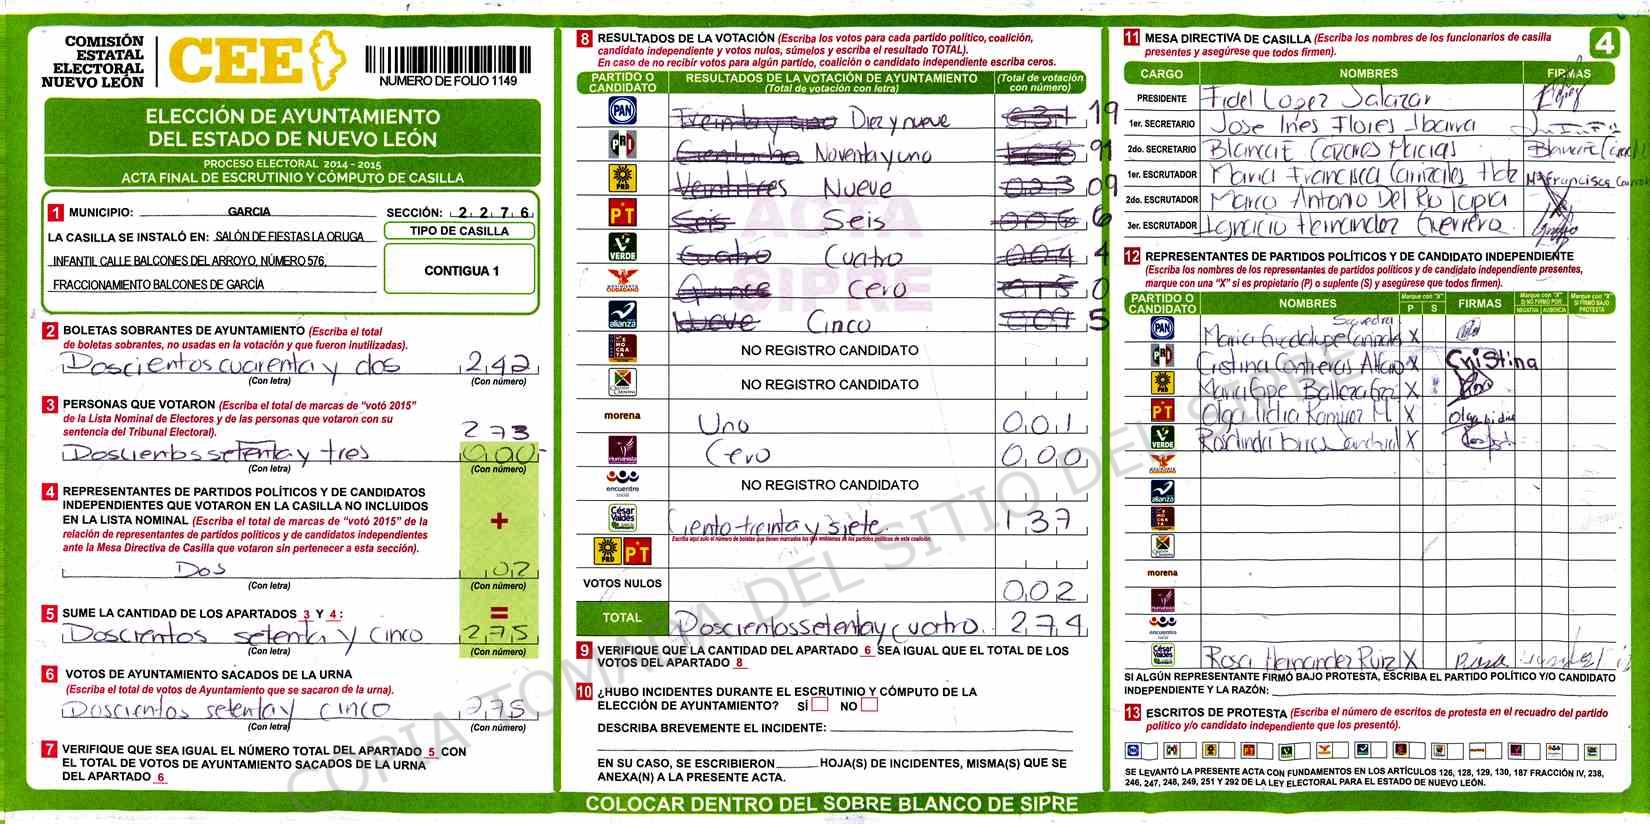 COMISIÓN
ESTATAL
ELECTORAL
NUEVO LEÓN
CEE
NUMERO DE FOLIO 1149
ELECCIÓN DE AYUNTAMIENTO
DEL ESTADO DE NUEVO LEÓN
PROCESO ELECTORAL 2014 - 2015
ACTA FINAL DE ESCRUTINIO Y CÓMPUTO DE CASILLA
1 MUNICIPIO: GARCIA SECCIÓN: 2 2 7 6
LA CASILLA SE INSTALÓ EN: SALÓN DE FIESTAS LA ORUGA
INFANTIL CALLE BALCONES DEL ARROYO, NÚMERO 576,
FRACCIONAMIENTO BALCONES DE GARCÍA
TIPO DE CASILLA
CONTIGUA 1
2 BOLETAS SOBRANTES DE AYUNTAMIENTO (Escriba el total
de boletas sobrantes, no usadas en la votación y que fueron inutilizadas).
Doscientos cuarenta y dos 242
(Con letra) (Con número)
3 PERSONAS QUE VOTARON (Escriba el total de marcas de "votó 2015"
de la Lista Nominal de Electores y de las personas que votaron con su
sentencia del Tribunal Electoral).
273
Doscientos setenta y tres 000
(Con letra) (Con número)
4 REPRESENTANTES DE PARTIDOS POLÍTICOS Y DE CANDIDATOS
INDEPENDIENTES QUE VOTARON EN LA CASILLA NO INCLUIDOS
EN LA LISTA NOMINAL (Escriba el total de marcas de "votó 2015" de la
relación de representantes de partidos políticos y de candidatos independientes
ante la Mesa Directiva de Casilla que votaron sin pertenecer a esta sección).
+
Dos 02
(Con letra) (Con número)
5 SUME LA CANTIDAD DE LOS APARTADOS 3 Y 4:
=
Doscientos setenta y cinco 275
(Con letra) (Con número)
6 VOTOS DE AYUNTAMIENTO SACADOS DE LA URNA
(Escriba el total de votos de Ayuntamiento que se sacaron de la urna).
Doscientos setenta y cinco 275
(Con letra) (Con número)
7 VERIFIQUE QUE SEA IGUAL EL NÚMERO TOTAL DEL APARTADO 5 CON
EL TOTAL DE VOTOS DE AYUNTAMIENTO SACADOS DE LA URNA
DEL APARTADO 6
8 RESULTADOS DE LA VOTACIÓN (Escriba los votos para cada partido político, coalición,
candidato independiente y votos nulos, súmelos y escriba el resultado TOTAL).
En caso de no recibir votos para algún partido, coalición o candidato independiente escriba ceros.
PARTIDO O CANDIDATO RESULTADOS DE LA VOTACIÓN DE AYUNTAMIENTO (Total de votación con letra) (Total de votación con número)
PAN Treinta y uno Diez y nueve 031 19
PRI Ciento ocho Noventa y uno 108 91
PRD Veintitres Nueve 023 09
PT Seis Seis 006 6
VERDE Cuatro Cuatro 004 4
MOVIMIENTO CIUDADANO Quince Cero 015 0
alianza Nueve Cinco 009 5
NO REGISTRO CANDIDATO
NO REGISTRO CANDIDATO
morena Uno 001
Humanista Cero 000
encuentro social NO REGISTRO CANDIDATO
César Valdés Ciento treinta y siete 137
Escriba aquí sólo el número de boletas que tienen marcados los dos emblemas de los partidos políticos de esta coalición.
PRD PT
VOTOS NULOS 002
TOTAL Doscientos setenta y cuatro 274
ACTA
SIPRE
9 VERIFIQUE QUE LA CANTIDAD DEL APARTADO 6 SEA IGUAL QUE EL TOTAL DE LOS
VOTOS DEL APARTADO 8
10 ¿HUBO INCIDENTES DURANTE EL ESCRUTINIO Y CÓMPUTO DE LA
ELECCIÓN DE AYUNTAMIENTO? SÍ NO
DESCRIBA BREVEMENTE EL INCIDENTE:
EN SU CASO, SE ESCRIBIERON HOJA(S) DE INCIDENTES, MISMA(S) QUE SE
ANEXA(N) A LA PRESENTE ACTA.
COLOCAR DENTRO DEL SOBRE BLANCO DE SIPRE
11 MESA DIRECTIVA DE CASILLA (Escriba los nombres de los funcionarios de casilla
presentes y asegúrese que todos firmen).
4
CARGO NOMBRES FIRMAS
PRESIDENTE Fidel Lopez Salazar
1er. SECRETARIO Jose Ines Flores Ibarra
2do. SECRETARIO Blanca E Cazares Macias
1er. ESCRUTADOR Maria Francisca Canizales Hdz Ma Francisca
2do. ESCRUTADOR Marco Antonio Del Rio Tapia
3er. ESCRUTADOR Ignacio Hernandez Guerrero
12 REPRESENTANTES DE PARTIDOS POLÍTICOS Y DE CANDIDATO INDEPENDIENTE
(Escriba los nombres de los representantes de partidos políticos y de candidato independiente presentes,
marque con una "X" si es propietario (P) o suplente (S) y asegúrese que todos firmen).
PARTIDO O CANDIDATO NOMBRES Marque con "X" P S FIRMAS Marque con "X" SI NO FIRMÓ POR NEGATIVA AUSENCIA Marque con "X" SI FIRMÓ BAJO PROTESTA
PAN Maria Guadalupe X
PRI Cristina Contreras Alfaro X Cristina
PRD Maria Gpe Balleza X
PT Olga Lidia Ramirez M. X Olga Lidia
VERDE Rosalinda X
alianza
morena
encuentro social
César Valdés Rosa Hernandez Ruiz X Rosa
SI ALGÚN REPRESENTANTE FIRMÓ BAJO PROTESTA, ESCRIBA EL PARTIDO POLÍTICO Y/O CANDIDATO
INDEPENDIENTE Y LA RAZÓN:
13 ESCRITOS DE PROTESTA (Escriba el número de escritos de protesta en el recuadro del partido
político y/o candidato independiente que los presentó).
SE LEVANTÓ LA PRESENTE ACTA CON FUNDAMENTOS EN LOS ARTÍCULOS 126, 128, 129, 130, 187 FRACCIÓN IV, 238,
246, 247, 248, 249, 251 Y 292 DE LA LEY ELECTORAL PARA EL ESTADO DE NUEVO LEÓN.
COPIA TOMADA DEL SITIO DEL SIPRE